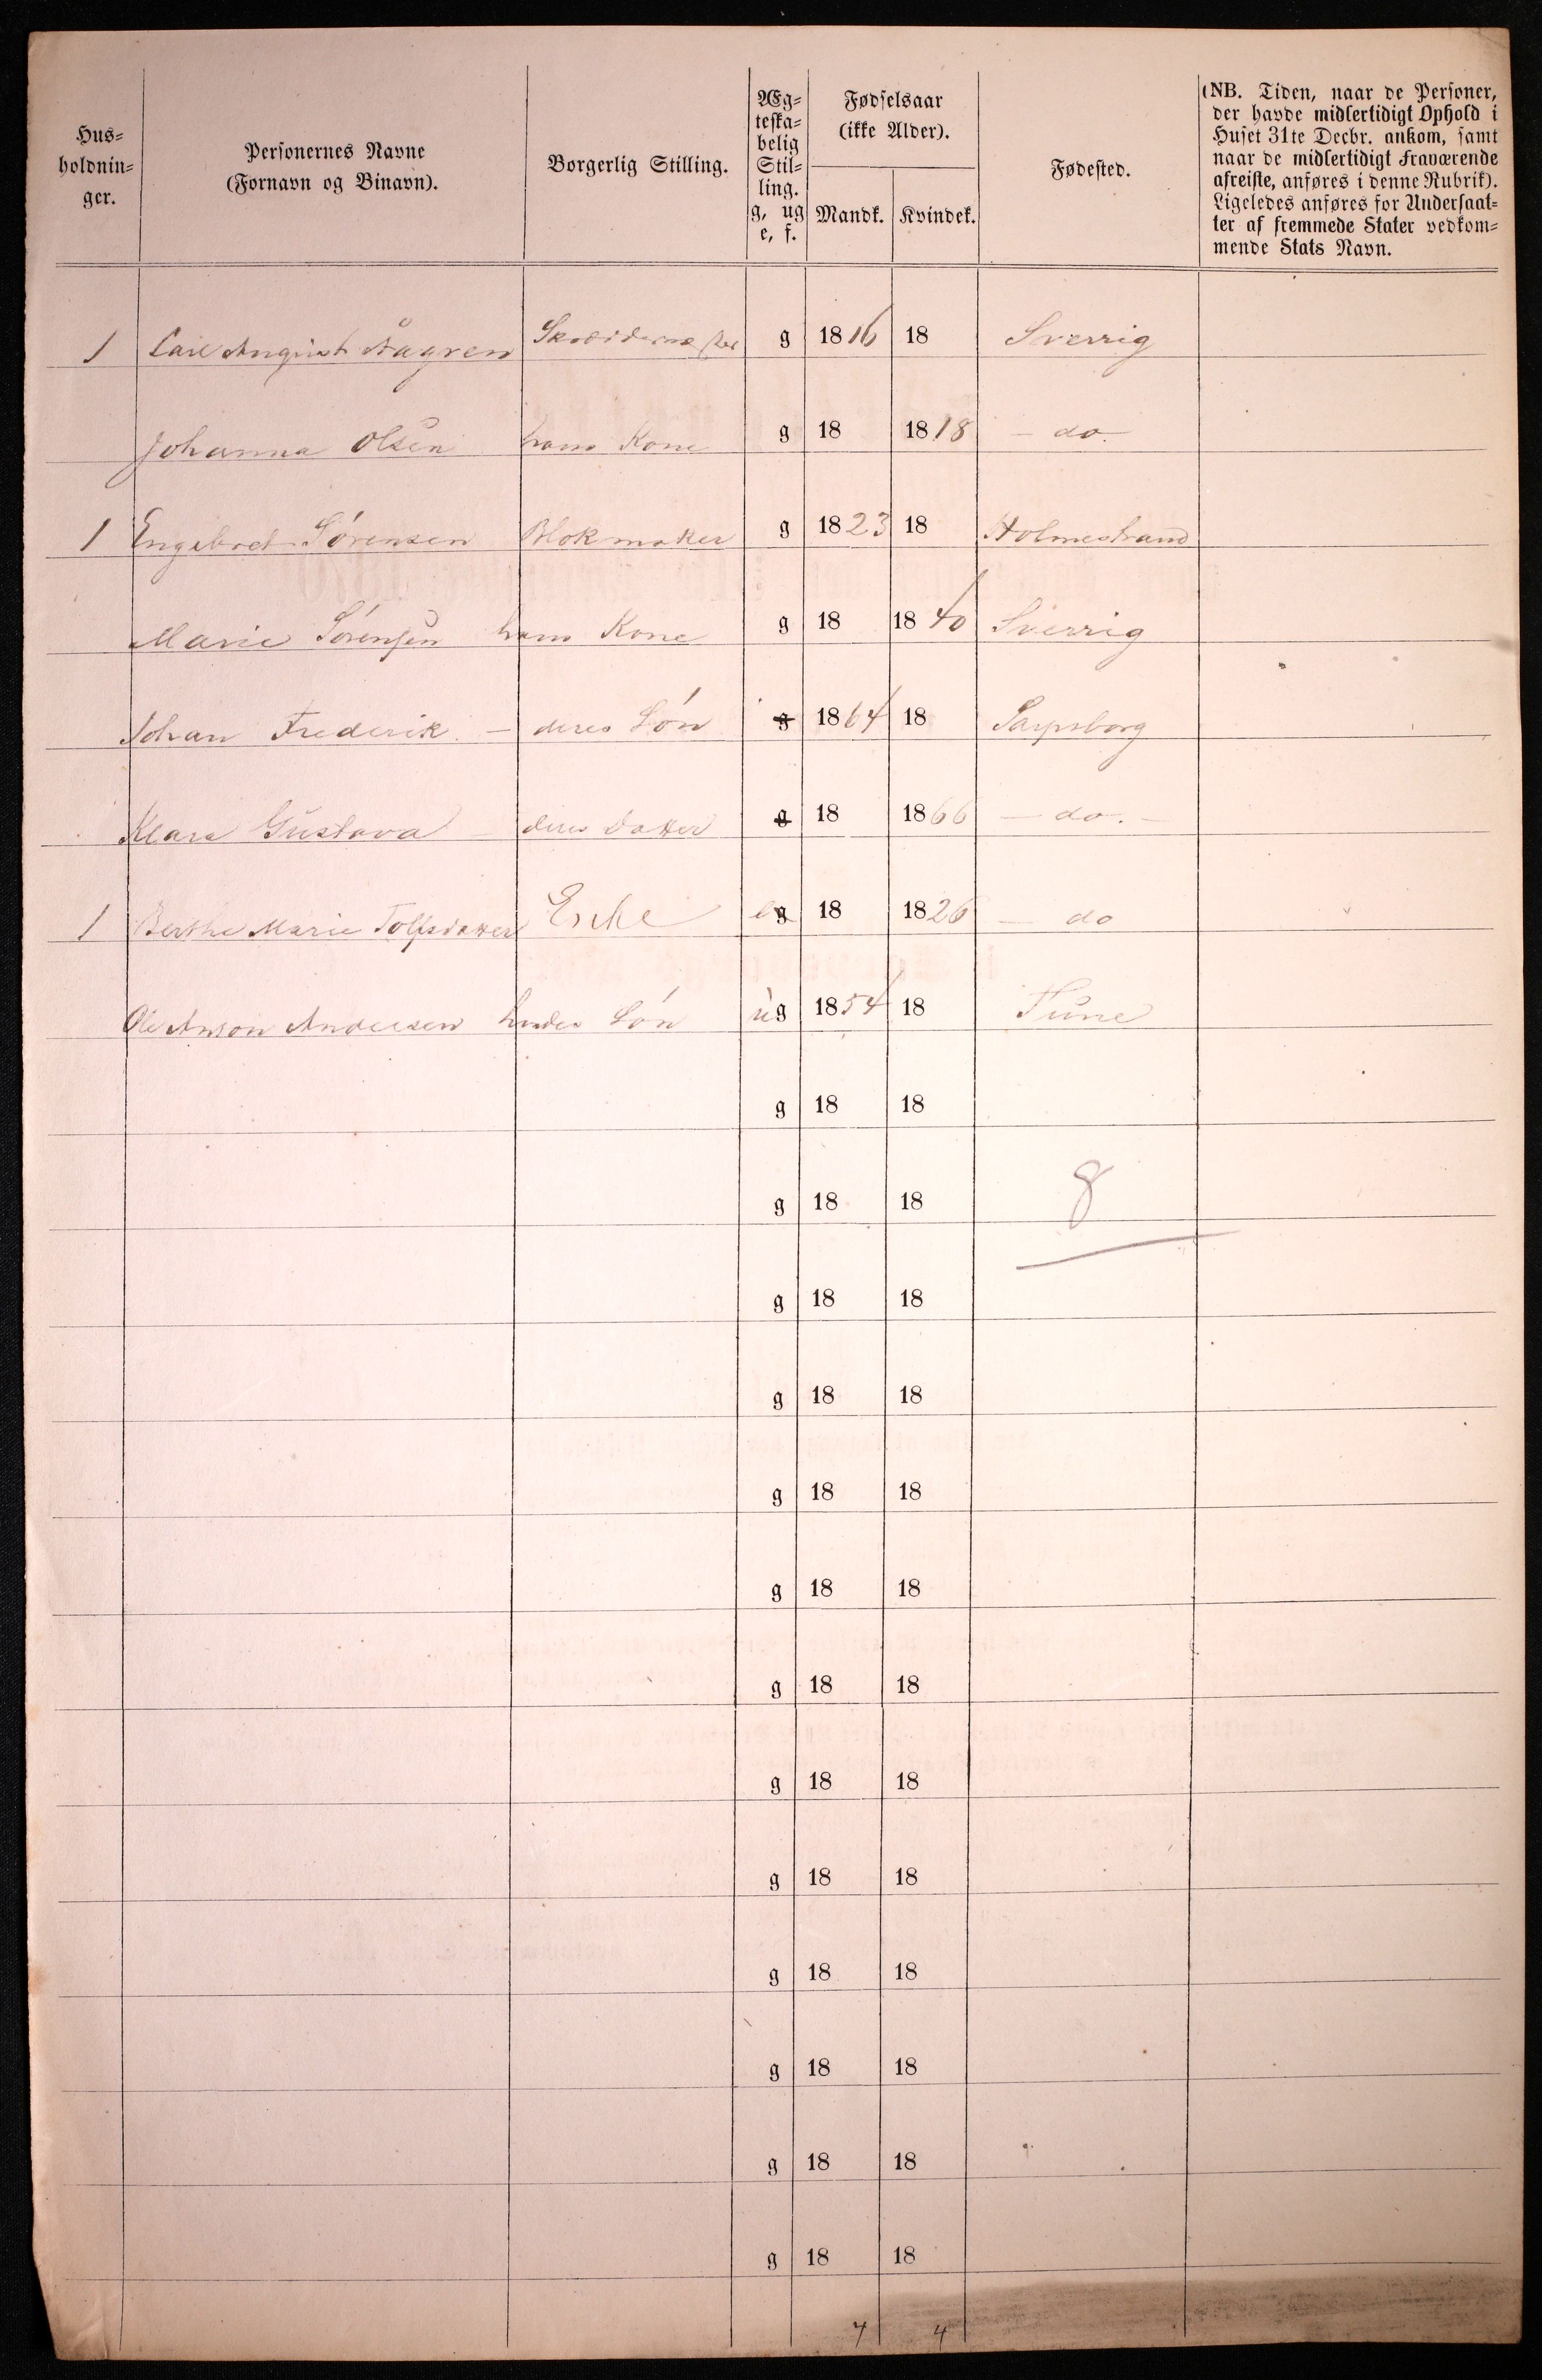 Hus-
holdnin-
ger.
Personernes Navne
(Fornavn og Binavn).
Borgerlig Stilling.
Æg-
teska-
belig
Stil-
ling.
g, ug
e, f.
Fødselsaar
(ikke Alder).
Mandk. Kvindek.
Fødested.
(NB. Tiden, naar de Personer,
der havde midlertidigt Ophold i
Huset 31te Decbr. ankom, samt
naar de midlertidigt Fraværende
afreiste, anføres i denne Rubrik).
Ligeledes anføres for Undersaat-
ter af fremmede Stater vedkom-
mende Stats Navn.
1 Carl August Ågren Skrædermester g 1816 18 Sverrig
Johanna Olsen hans Kone g 18 1818 - do.
1 Engebret Sørensen Blokmaker g 1823 18 Holmestrand
Marie Sørensen hans Kone g 18 1840 Sverrig
Johan Frederik - deres Són g 1864 18 Sarpsborg
Klara Gustava - deres Datter g 18 1866 - do. -
1 Berthe Marie Tolfsdatter Enke e g 18 1826 - do
Ole Anton Andersen hendes Són ug 1854 18 Tune
g 18 18
g 18 18 8
g 18 18
g 18 18
g 18 18
g 18 18
g 18 18
g 18 18
g 18 18
g 18 18
g 18 18
g 18 18
g 18 18
4 4